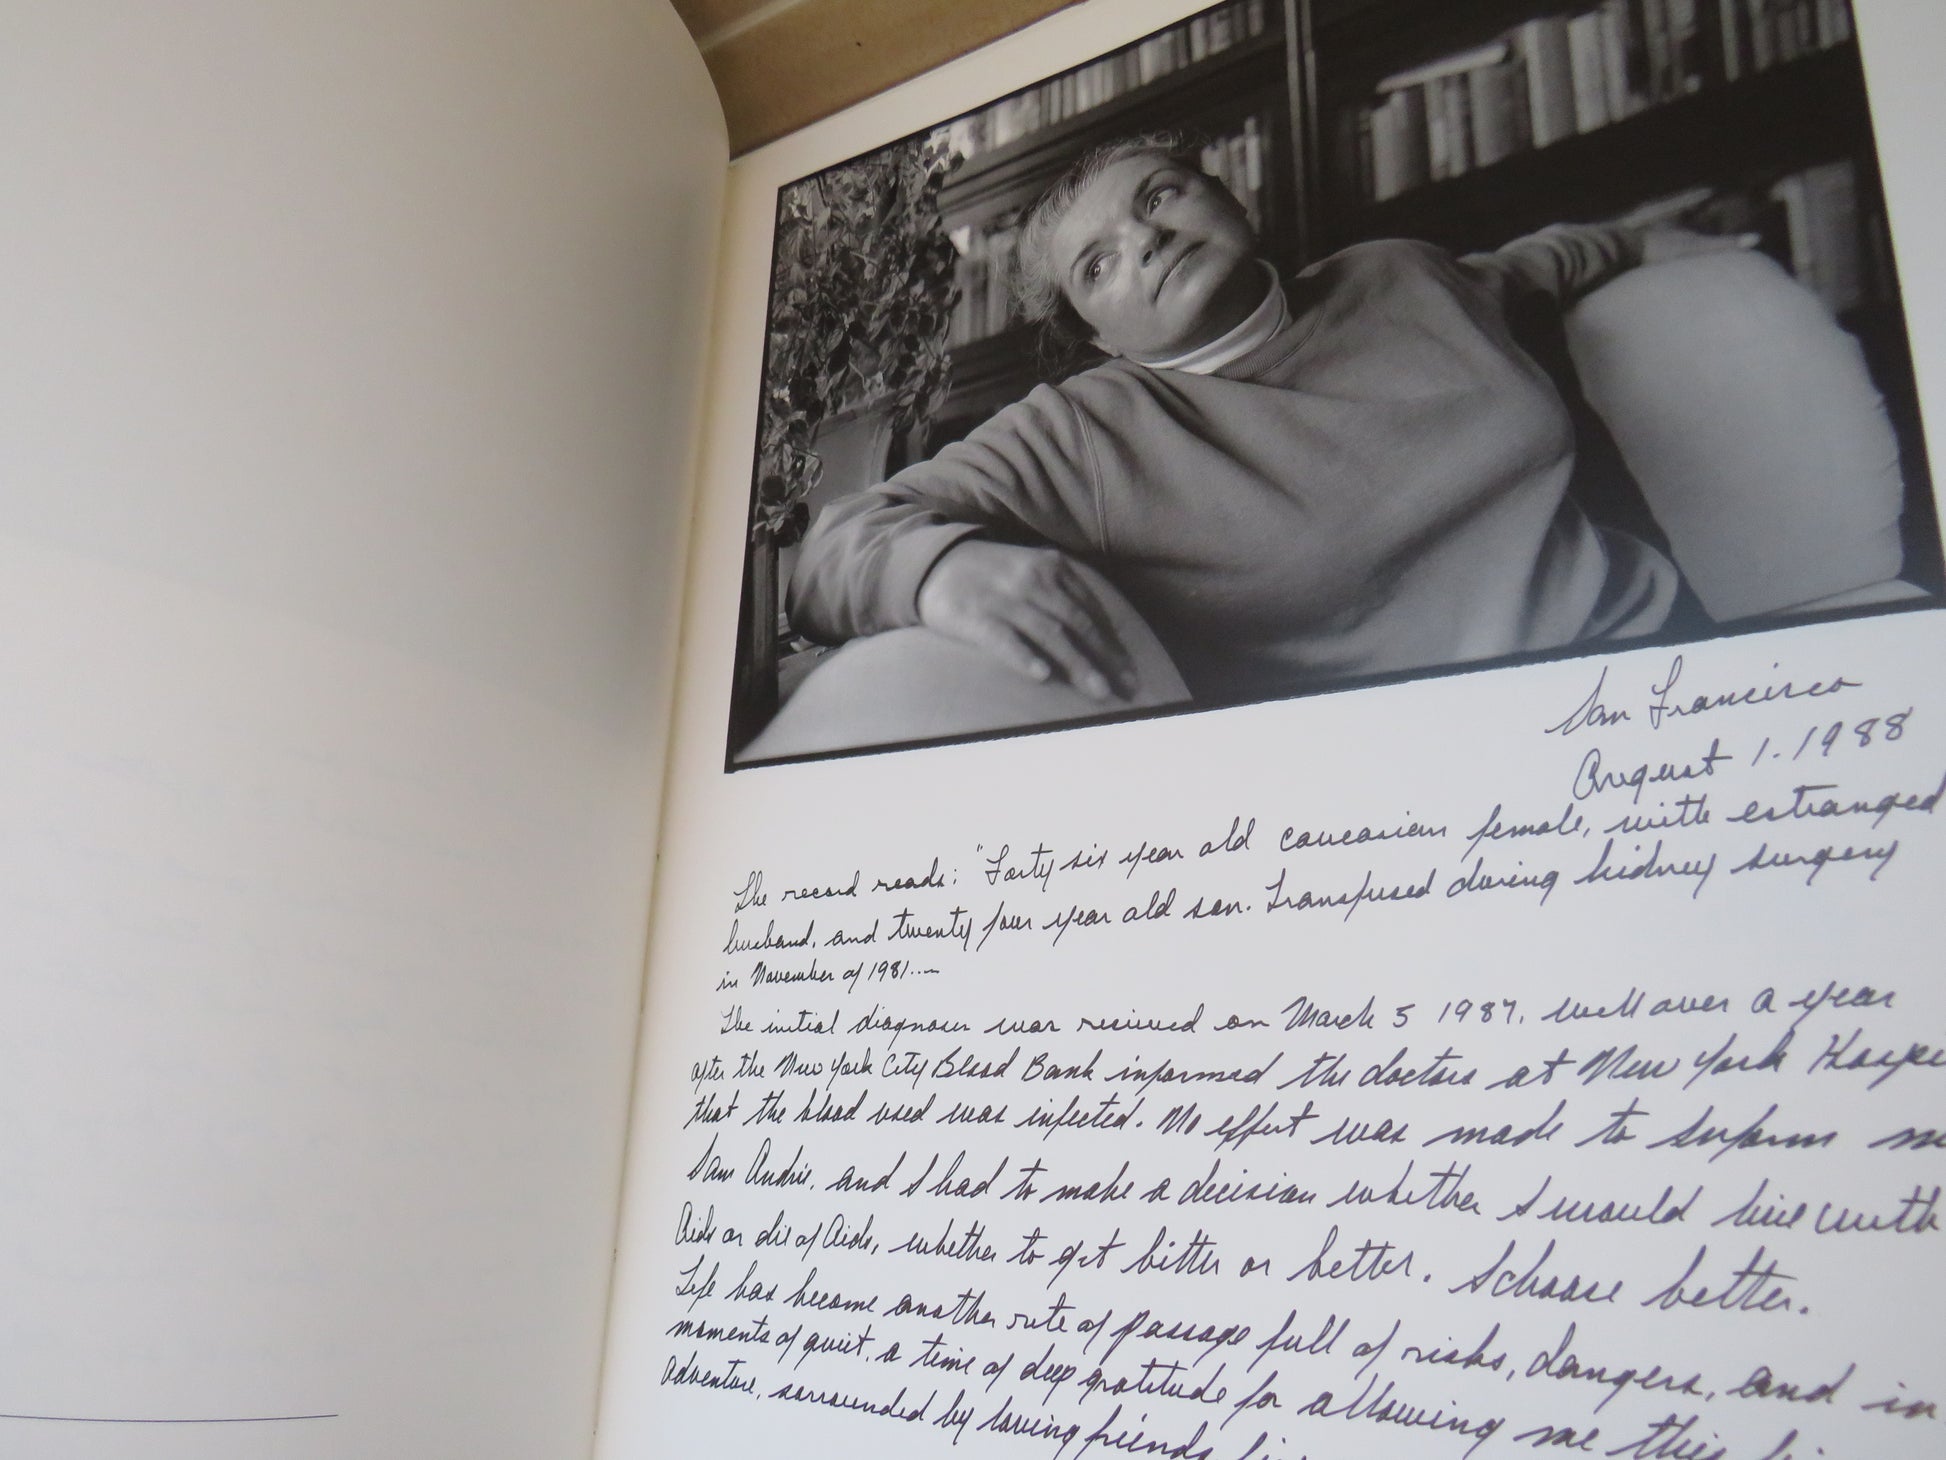 San Francisco
August 1. 1988
The record reads: "Forty six year old caucasian female, with estranged
husband, and twenty four year old son. Transfused during kidney surgery
in November of 1981....
The initial diagnosis was recieved on March 5 1987, well over a year
after the New York City Blood Bank informed the doctors at New York
that the blood used was infected. No effort was made to inform
I am Andrie, and I had to make a decision whether I would live with
Aids or die of Aids, whether to get bitter or better. I choose better.
Life has become another rite of passage full of risks, dangers, and in
moments of quiet, a time of deep gratitude for allowing me this
adventure, surrounded by loving friends